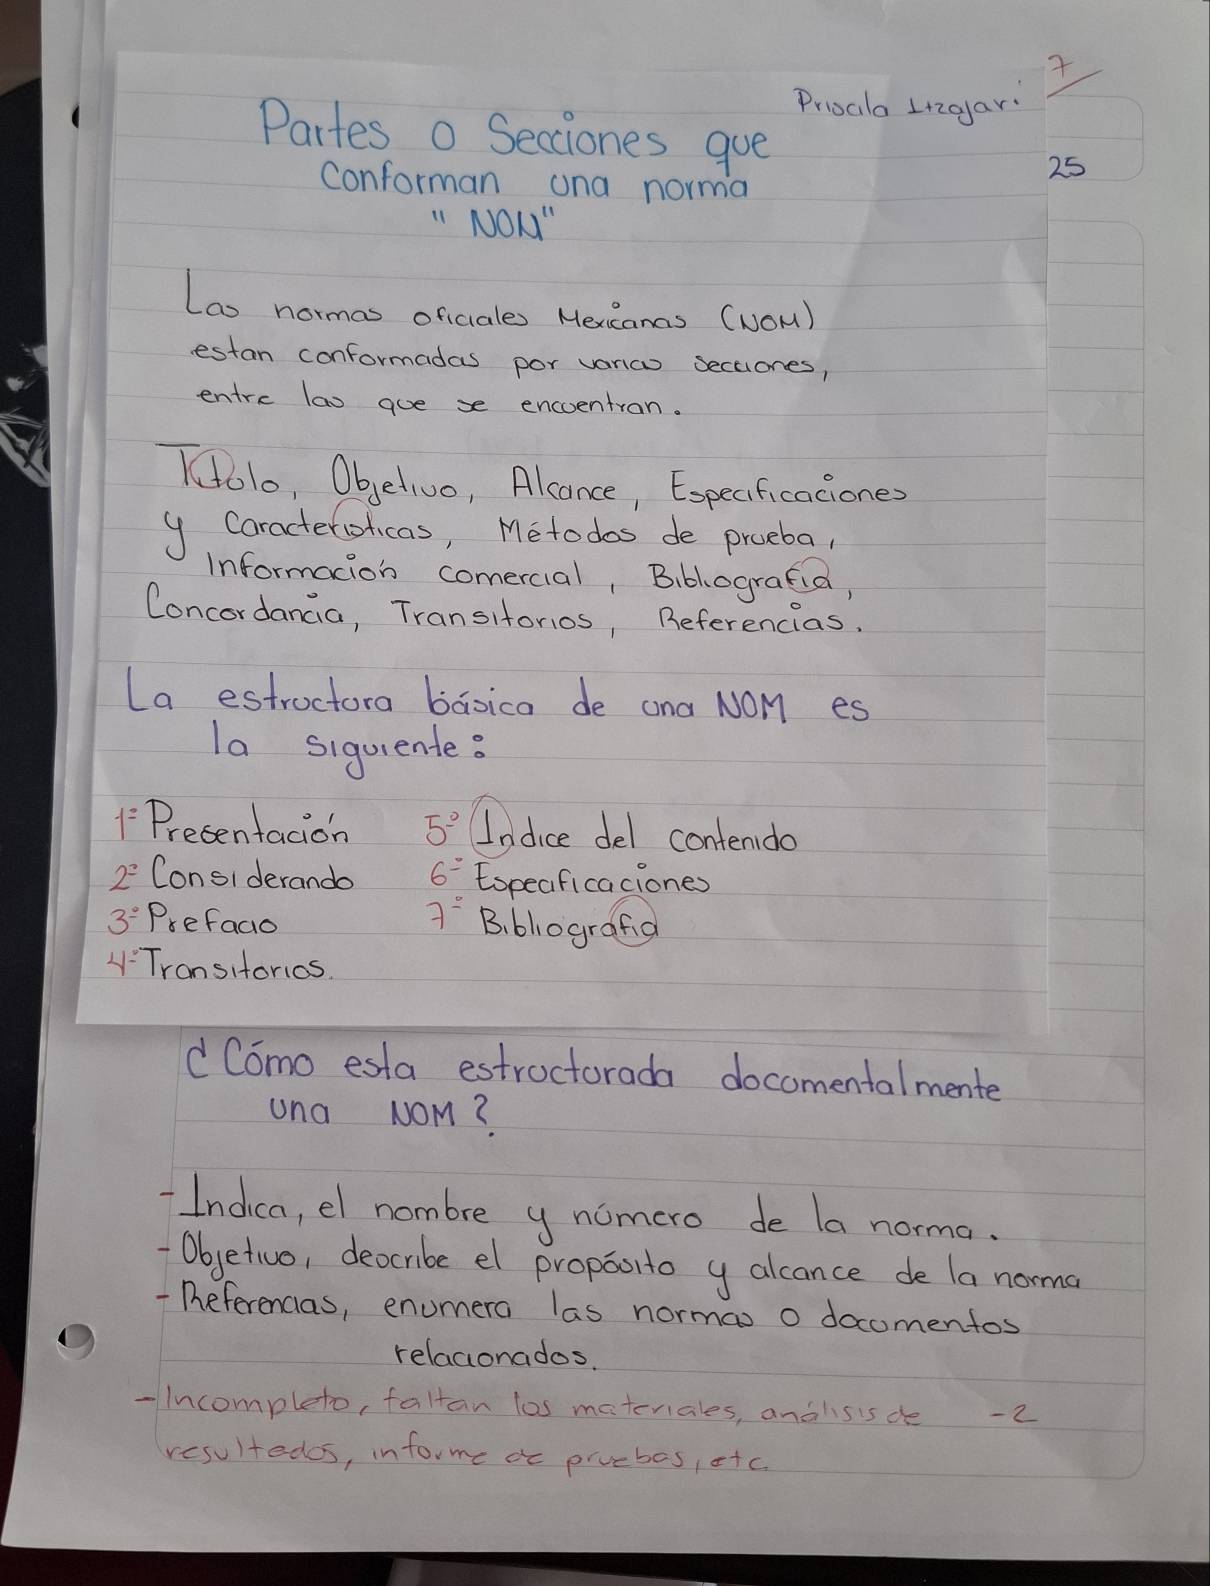 7
Priscila Itzajari
25
Partes o Secciones que
Conforman una norma
"NOM"
Las normas oficiales Mexicanas (NOM)
estan conformadas por varias secciones,
entre las que se encuentran.
Titolo, Objetivo, Alcance, Especificaciones
y Caracteristicas, Métodos de prueba,
Información comercial, Bibliografia,
Concordancia, Transitorios, Referencias.
La estructura básica de una NOM es
la siguiente:
1º Presentación
2º Considerando
3º Prefacio
4º Transitorios.
5º Indice del contenido
6º Especificaciones
7º Bibliografia
¿Cómo esta estructurada documentalmente
una NOM?
- Indica, el nombre y número de la norma.
- Objetivo, describe el propósito y alcance de la norma
- Referencias, enumera las normas o documentos
relacionados.
- Incompleto, faltan los materiales, análisis de -2
resultados, informe de pruebas, etc.